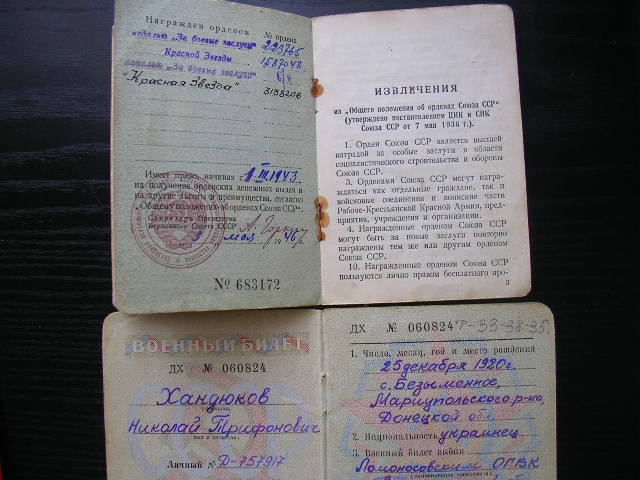 Награжден орденом
№ ордена
медалью „За боевые заслуги" 223765
Красной Звезды 1587048
медалью „За боевые заслуги" б/н
"Красная Звезда" 3138206
Имеет право, начиная с 1.III.1943
на получение орденских денежных выдач и
на другие льготы и преимущества, согласно
„Общему положению об орденах Союза ССР".
Секретарь Президиума
Верховного Совета СССР А. Горкин
мая 1946 г.
№ 683172
ИЗВЛЕЧЕНИЯ
из „Общего положения об орденах Союза ССР"
(утверждено постановлением ЦИК и СНК
Союза ССР от 7 мая 1936 г.).
1. Орден Союза ССР является высшей
наградой за особые заслуги в области
социалистического строительства и обороны
Союза ССР.
3. Орденами Союза ССР могут награж-
даться как отдельные граждане, так и
войсковые соединения и воинские части
Рабоче-Крестьянской Красной Армии, пред-
приятия, учреждения и организации.
4. Награжденные орденом Союза ССР
могут быть за новые заслуги повторно
награждены тем же или другим орденом
Союза ССР.
10. Награжденные орденом Союза ССР
пользуются лично правом бесплатного про-
3
ВОЕННЫЙ БИЛЕТ
ДХ № 060824
Хандюков
Николай Трифонович
Личный № Д-757917
ДХ № 060824 Т-33-38-35
1. Число, месяц, год и место рождения
25 декабря 1920 г.
с. Безыменное,
Мариупольского р-на,
Донецкой обл.
2. Национальность украинец
3. Военный билет выдан
Ломоносовским ОГВК